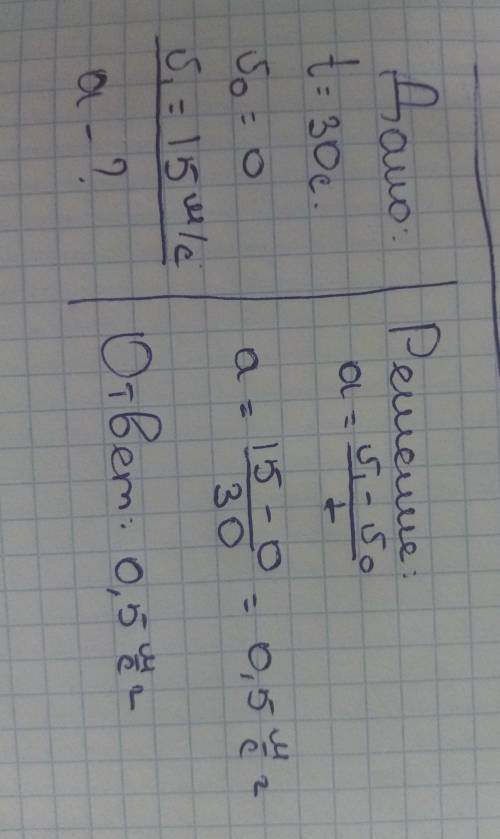 Дано:
t = 30с.
υ₀ = 0
υ₁ = 15 м/с
a - ?
Решение:
a = (υ₁ - υ₀) / t
a = (15 - 0) / 30 = 0,5 м/с²
Ответ: 0,5 м/с²